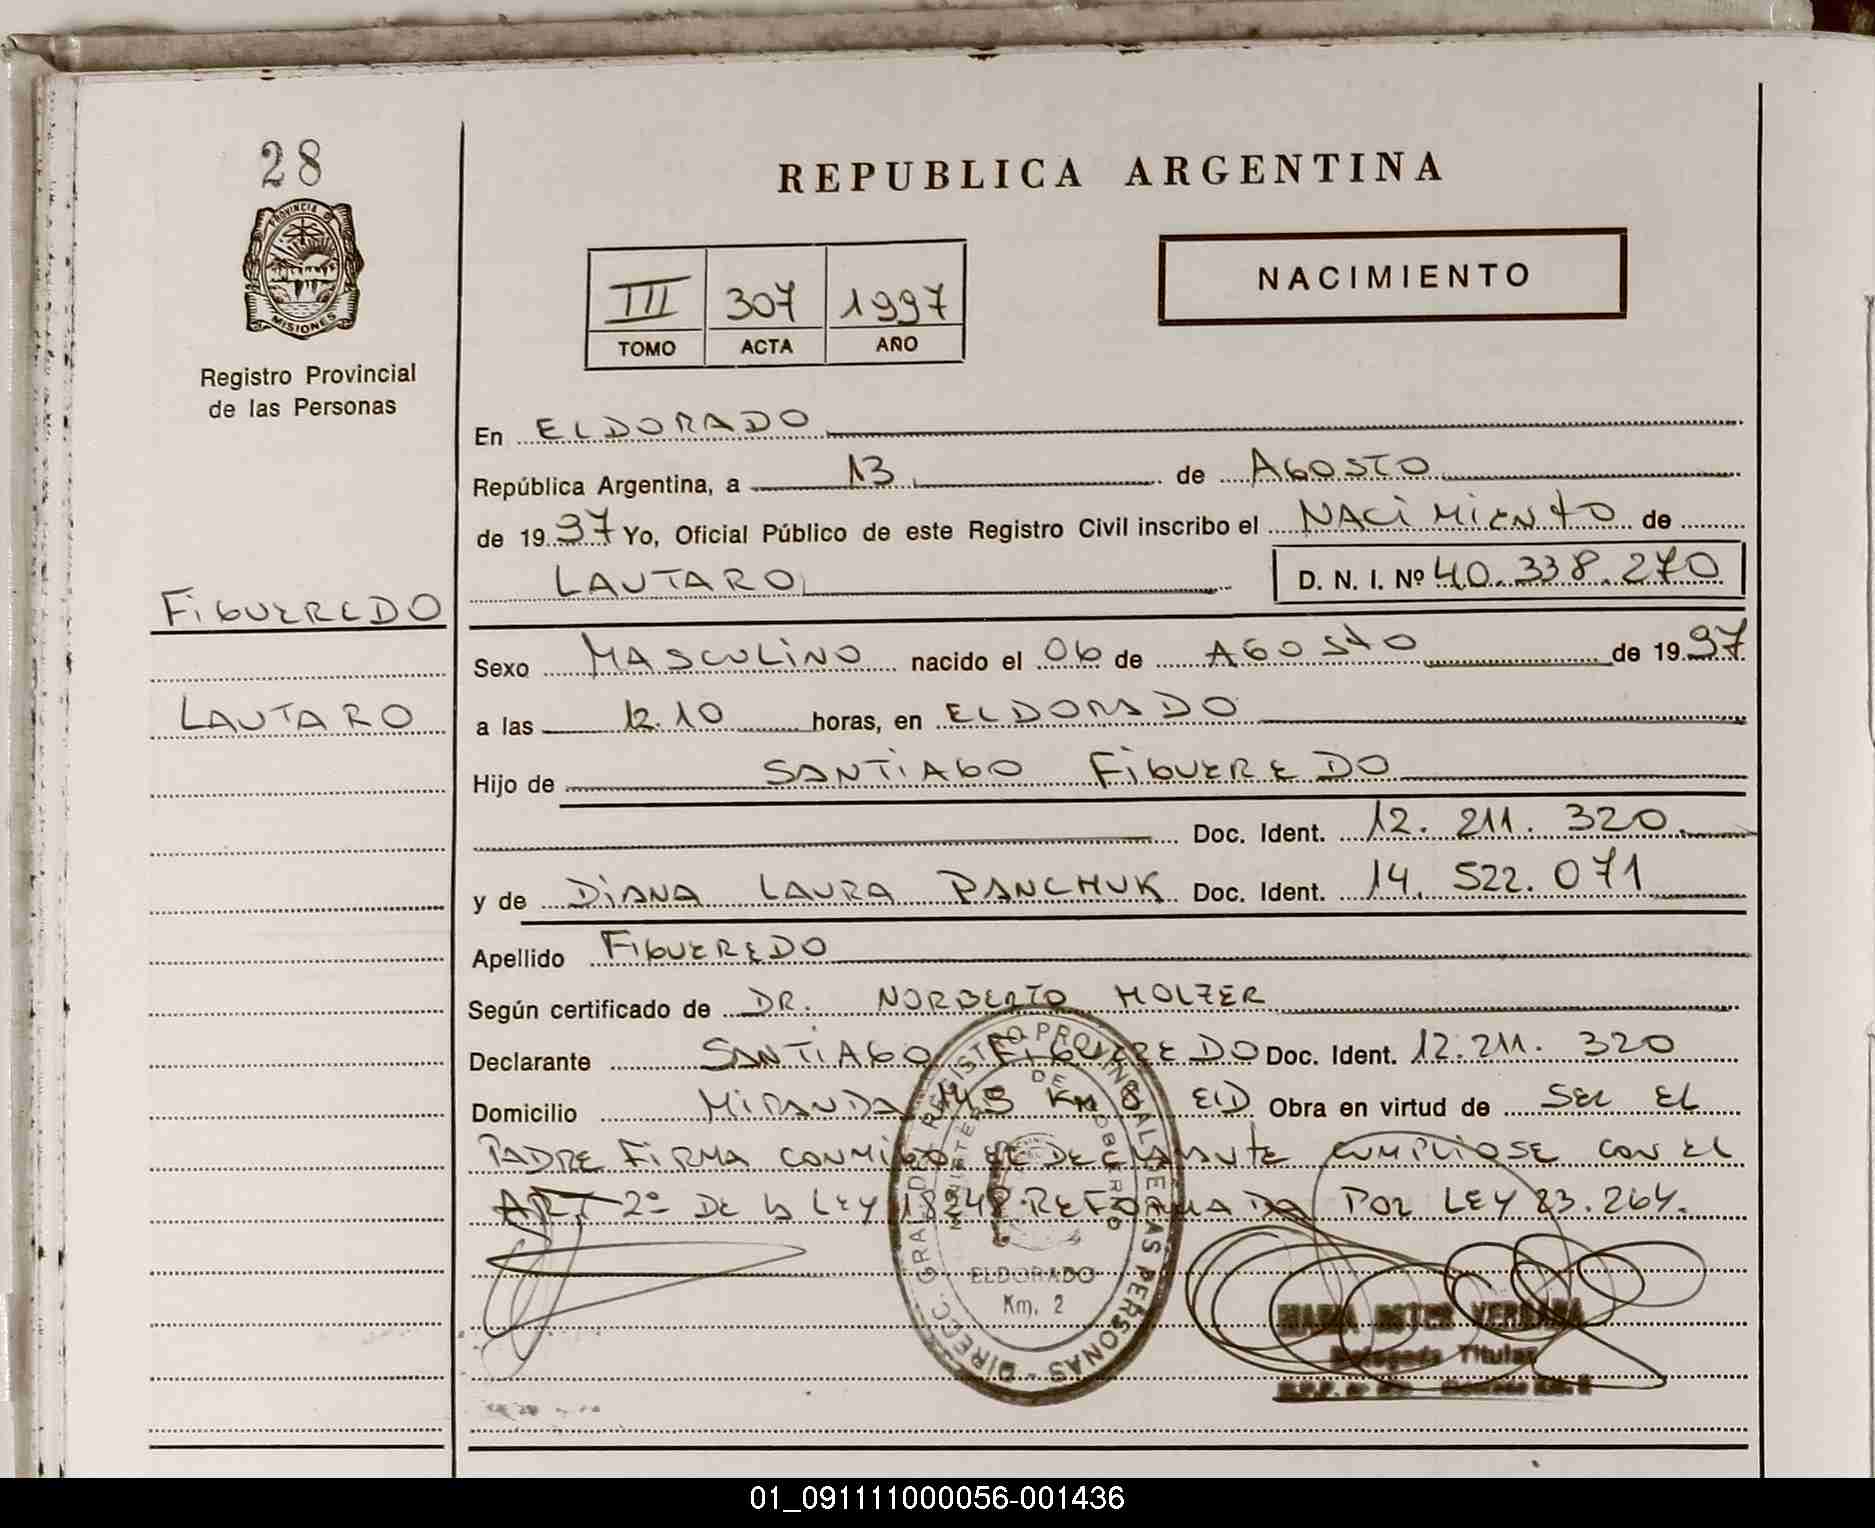 28
PROVINCIA DE
MISIONES
Registro Provincial
de las Personas
REPUBLICA ARGENTINA
III 307 1997
TOMO ACTA AÑO
NACIMIENTO
En ELDORADO
República Argentina, a 13 de AGOSTO
de 1997 Yo, Oficial Público de este Registro Civil inscribo el NACIMIENTO de
LAUTARO D. N. I. Nº 40.338.270
FIGUEREDO
Sexo MASCULINO nacido el 06 de AGOSTO de 1997
LAUTARO
a las 12.10 horas, en ELDORADO
Hijo de SANTIAGO FIGUEREDO
Doc. Ident. 12. 211. 320
y de DIANA LAURA PANCHUK Doc. Ident. 14. 522. 071
Apellido FIGUEREDO
Según certificado de DR. NORBERTO HOLZER
Declarante SANTIAGO FIGUEREDO Doc. Ident. 12.211. 320
Domicilio MIRANDA KM 8 ELD Obra en virtud de SER EL
PADRE FIRMA CONMIGO EL DECLARANTE CUMPLIOSE CON EL
ART 2º DE LA LEY 18248 REFORMADA POR LEY 23.264.
DIRECC. GRAL. DEL REGISTRO PROVINCIAL DE LAS PERSONAS
MINISTERIO DE GOBIERNO
ELDORADO
Km. 2
MARIA ESTER VERGARA
Delegada Titular
01_091111000056-001436